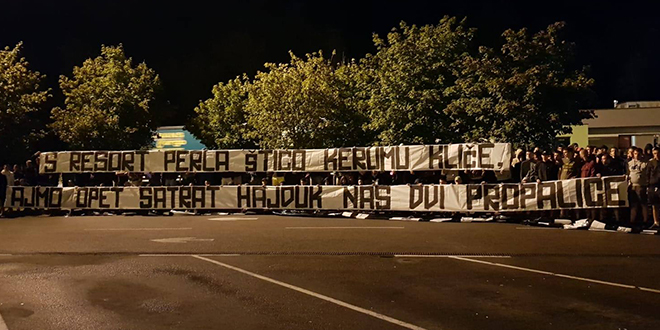 S RESORT PERLA ŠTIGO KERUMU KLIČE,
AJMO OPET SATRAT HAJDUK NAS DVI PROPALICE